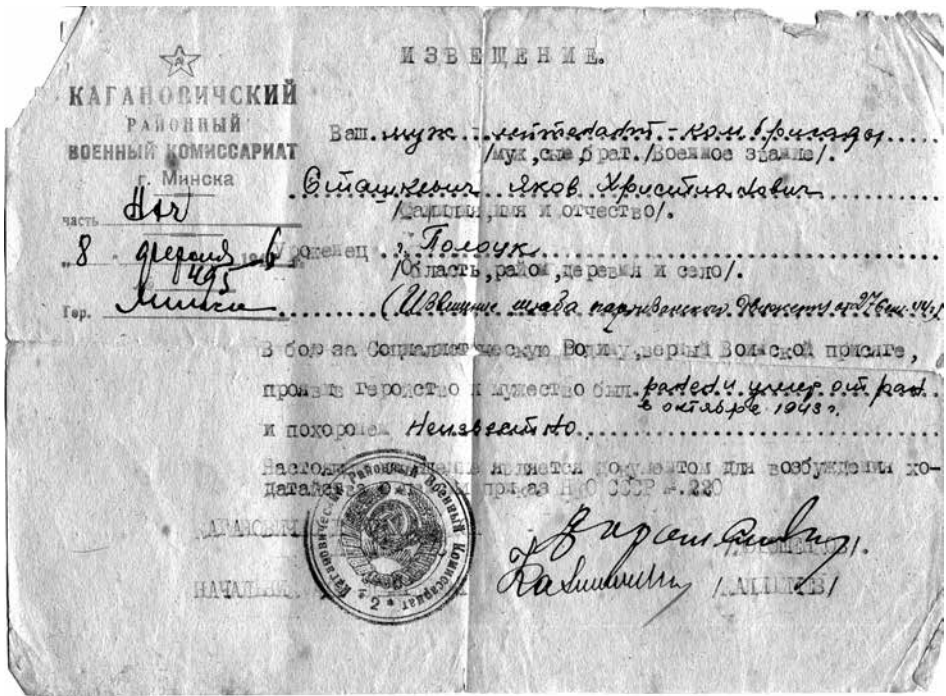 ИЗВЕЩЕНИЕ.
КАГАНОВИЧСКИЙ
РАЙОННЫЙ
ВОЕННЫЙ КОМИССАРИАТ
г. Минска
часть
„8 февраля 194 6
№ 495
Гор. Минск
Ваш муж лейтенант - ком бригады
/муж, сын, брат./Военное звание/.
Сташкевич Яков
/Фамилия, имя и отчество/.
Уроженец г. Полоцк
/Область, район, деревня и село/.
(Извещение штаба партизанского движения от
В бою за Социалистическую Родину, верный Воинской присяге,
проявив геройство и мужество был ранен и умер от ран
в октябре 1943 г.
и похоронен Неизвестно
Настоящее извещение является документом для возбуждения хо-
датайства о приказ НКО СССР №.220
НАЧАЛЬНИК
Кагановический Районный Военный Комиссариат
2